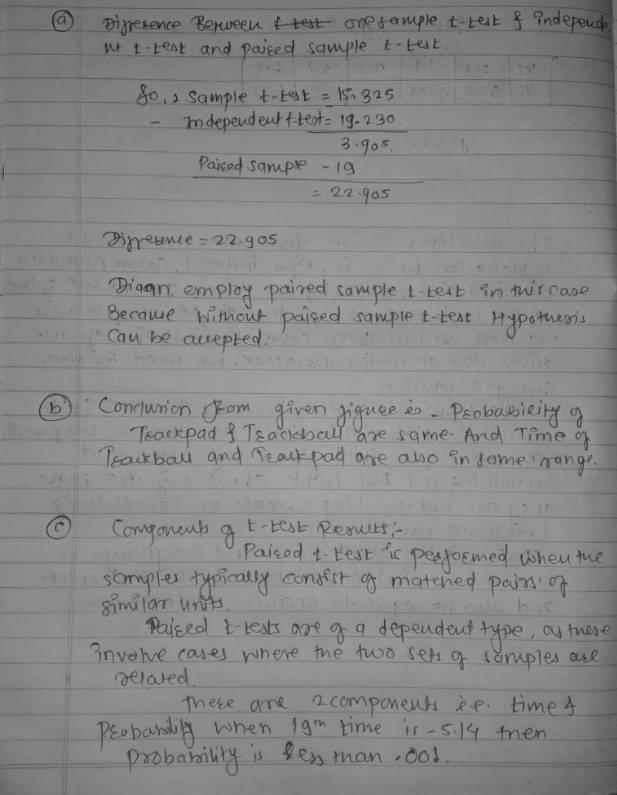 (a) Difference Between t-test one sample t-test & independe
nt t-test and paired sample t-test.
So, 1 Sample t-test = 15.325
- Independent t-test = 19.230
3.905
Paired sample - 19
= 22.905
Difference = 22.905
employ paired sample t-test in this case
Because without paired sample t-test Hypothesis
Can be accepted.
(b) Conclusion from given figure is - Probability of
Trackpad & Trackball are same. And Time of
Trackball and Trackpad are also in same range.
(c) Components of t-test Results:-
Paired t-test is performed when the
samples typically consist of matched pairs of
similar units.
Paired t-tests are of a dependent type, as these
involve cases where the two sets of samples are
related.
there are 2 components i.e. time &
Probability when 19th time is -5.14 then
probability is less than .001.